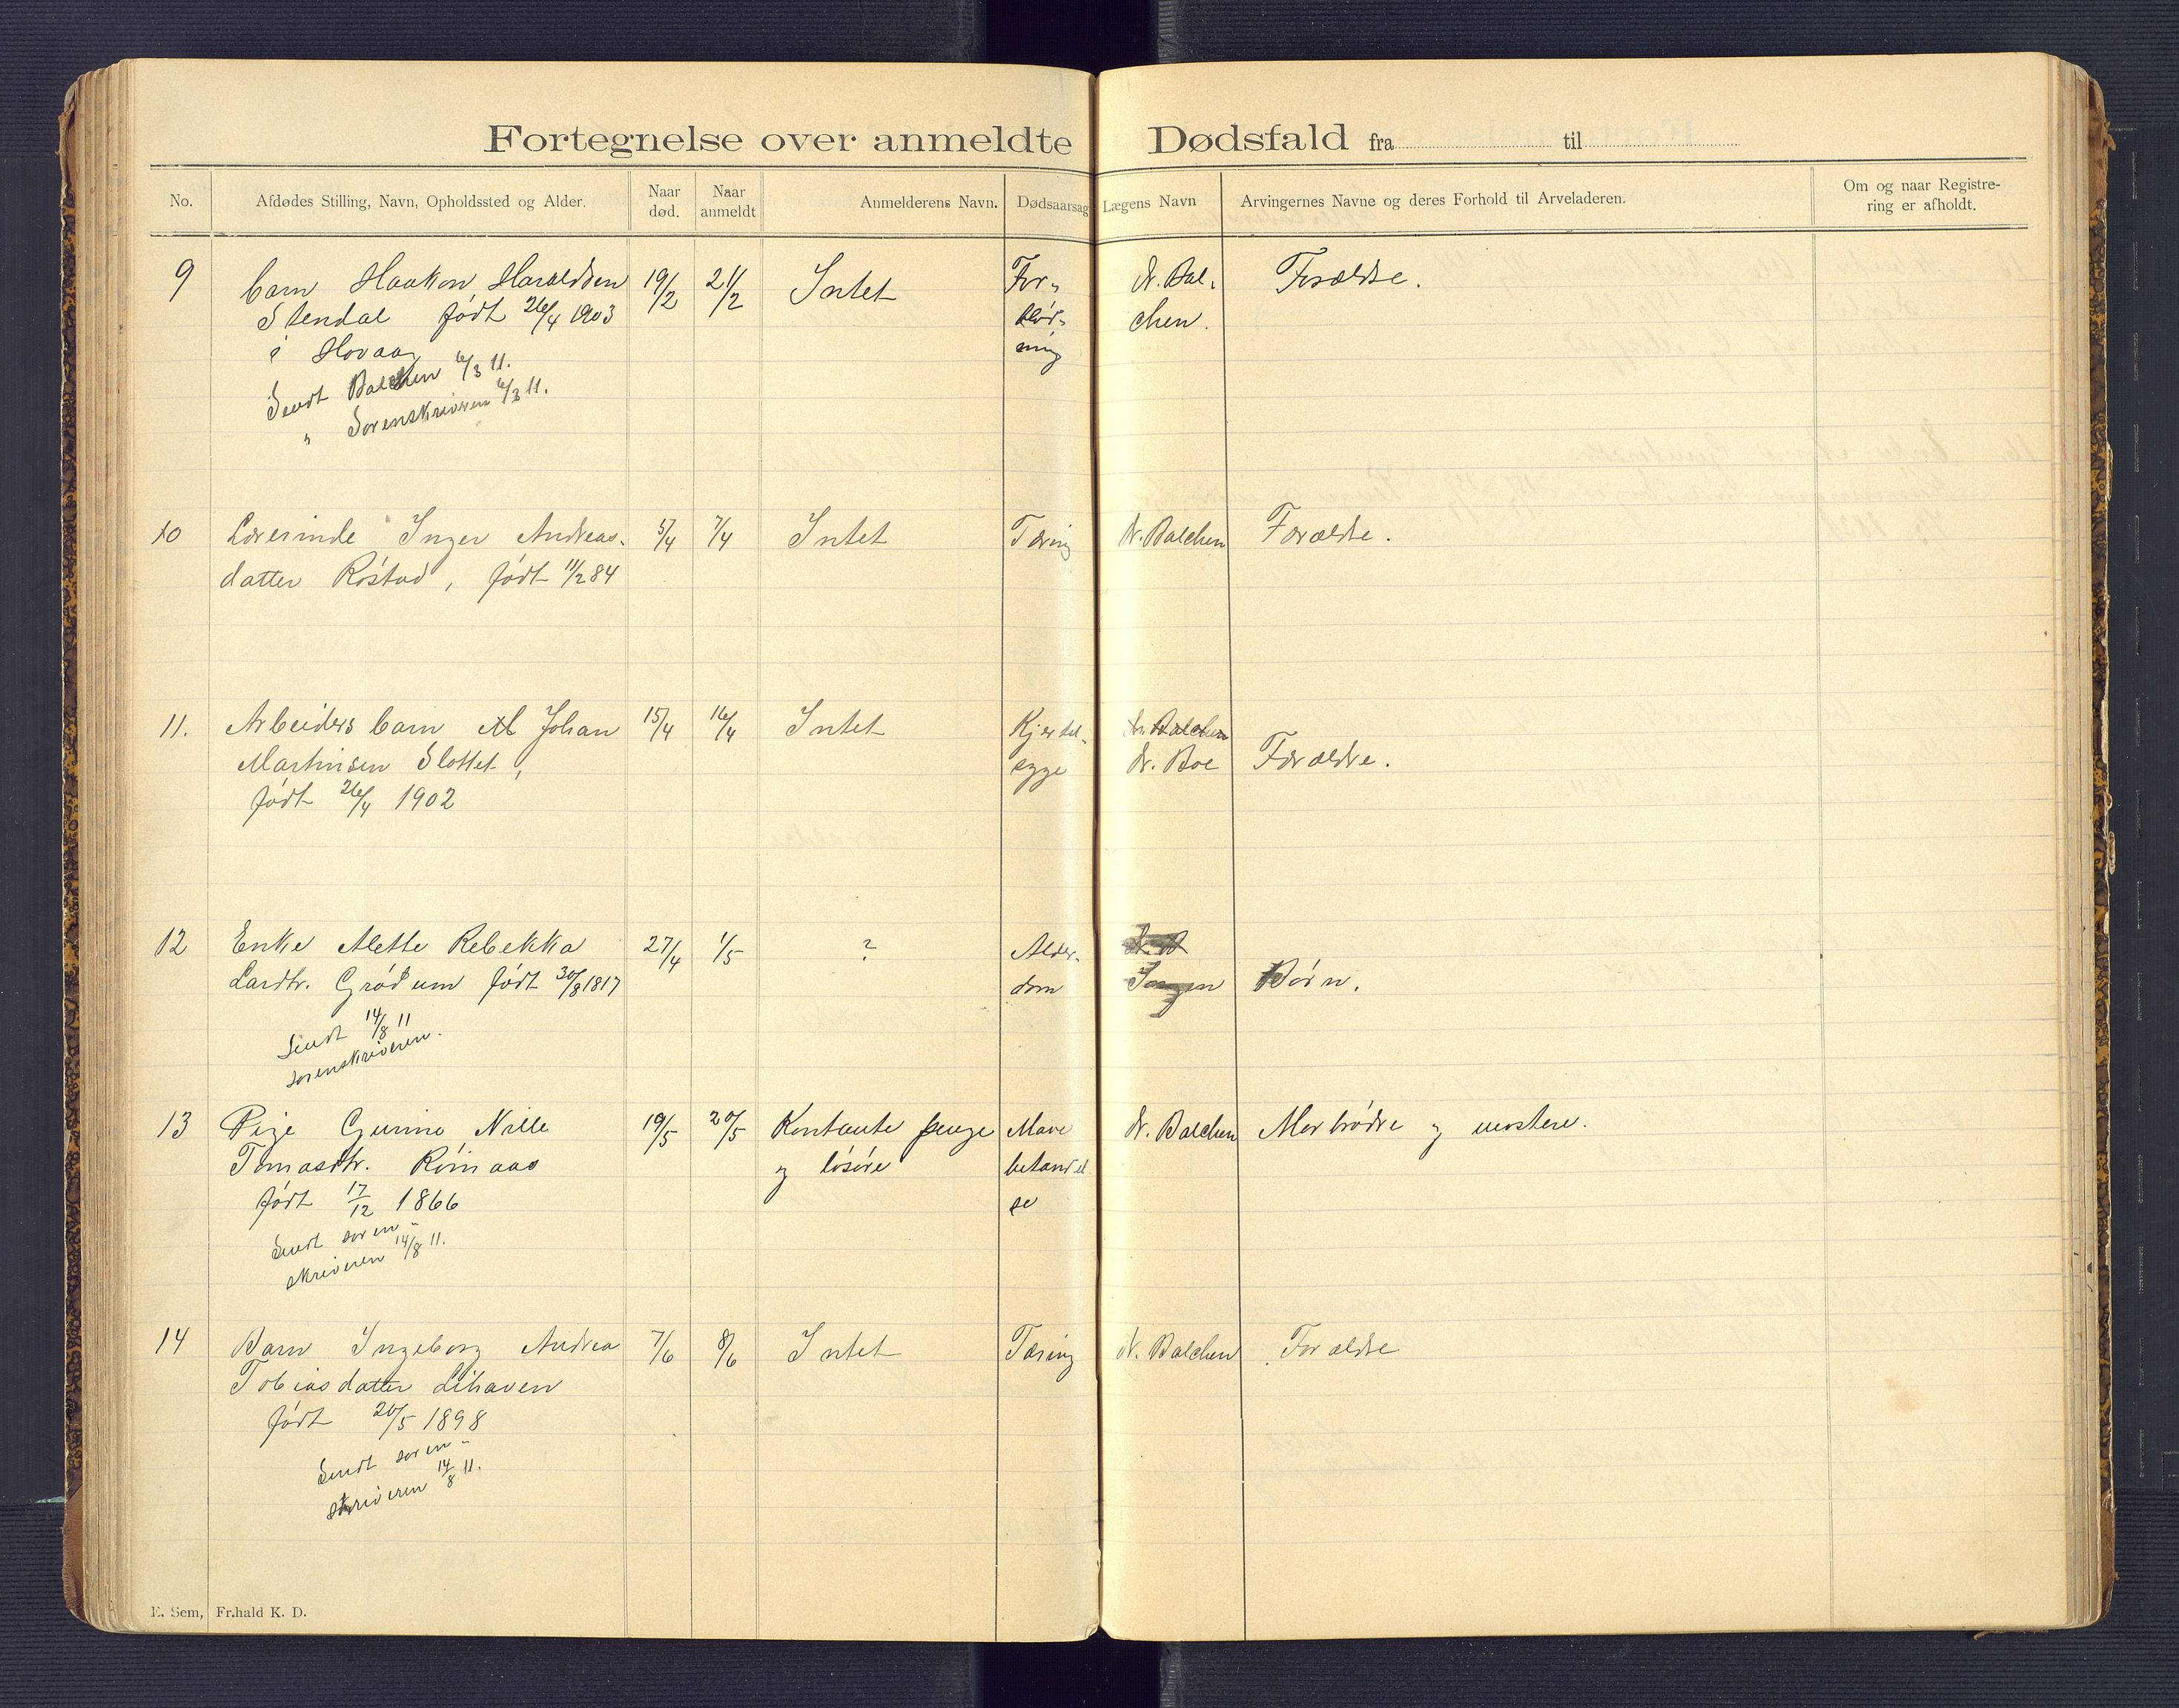 Fortegnelse over anmeldte Dødsfald fra til
No. Afdødes Stilling, Navn, Opholdssted og Alder. Naar død. Naar anmeldt Anmelderens Navn. Dødsaarsag Lægens Navn Arvingernes Navne og deres Forhold til Arveladeren. Om og naar Registrering er afholdt.
9 barn Haakon Haraldsen 19/2 21/2 Intet For- dr. Bal- Forældre.
Stendal født 26/4 1903 blød- chen.
i Hovaag ning
Sendt Balchen 6/3 11.
" Sorenskriveren 6/3 11.
10 Lærerinde Inger Andreas- 5/4 7/4 Intet Tæring dr. Balchen Forældre.
datter Röstad, født 11/2 84
11. Arbeiders barn Johan 15/4 16/4 Intet Kjertel- dr. Balchen
Martinsen Slottet, syge dr. Boe Forældre.
født 26/4 1902
12 Enke Alette Rebekka 27/4 1/5 ? Alder-
Lardtr. Grödum født 30/8 1817 dom Ingen Börn.
Sendt 14/8 11
sorenskriveren.
13 Pige Gurine Nille 19/5 20/5 Kontante penge Mave dr. Balchen Morbrödre og mostere.
Tomasdtr. Römaas og lösöre betændel
født 17/12 1866 se
Sendt soren-
skriveren 14/8 11.
14 Barn Ingeborg Andrea 7/6 8/6 Intet Tæring dr. Balchen Forældre
Tobiasdatter Lihaven
født 20/5 1898
Sendt soren-
skriveren 14/8 11.
E. Sem, Fr.hald K. D.